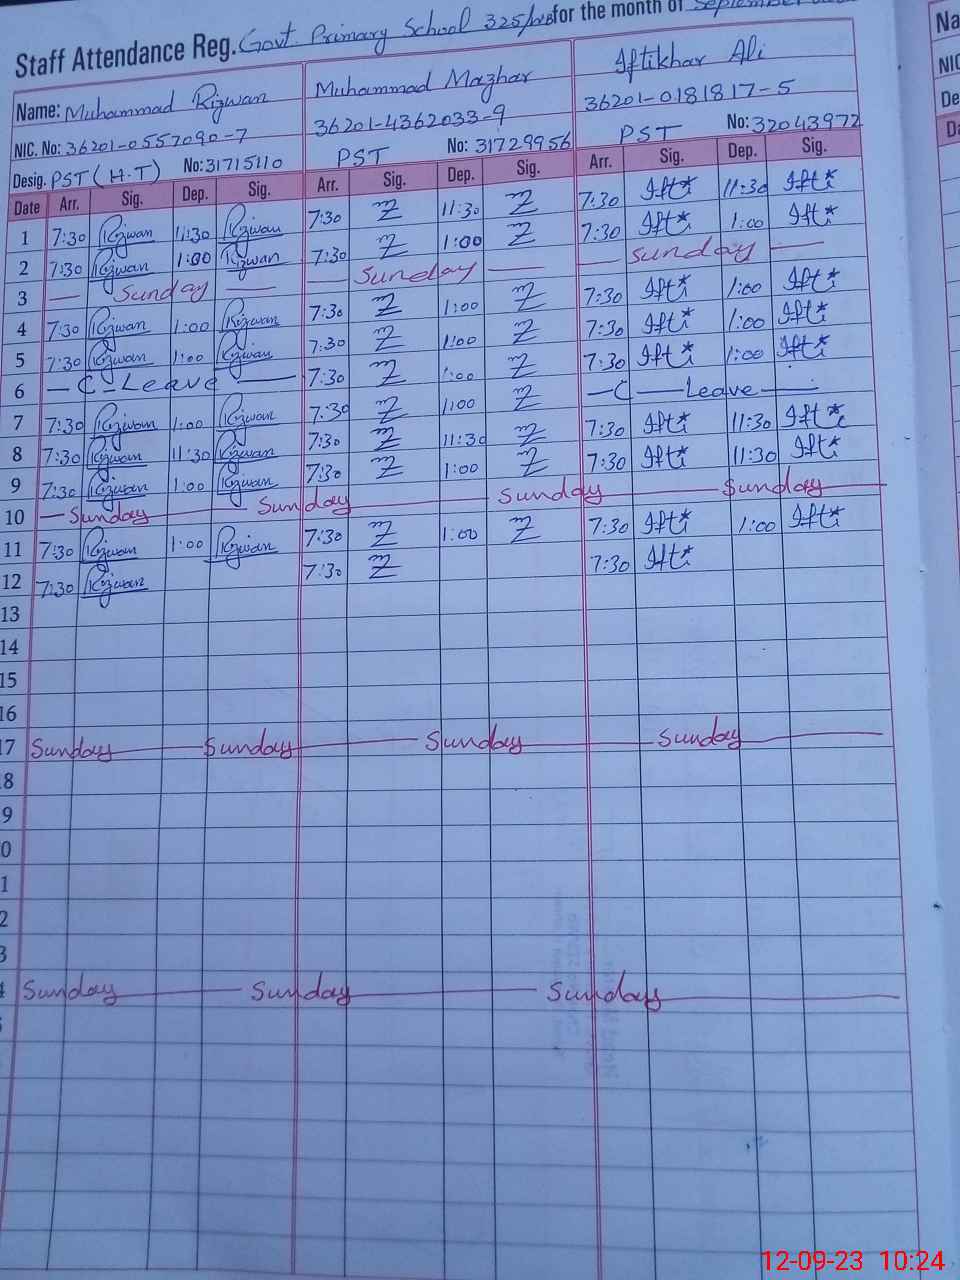 Staff Attendance Reg. Govt. Primary School 325/ for the month of September
Name: Muhammad Rizwan Muhammad Mazhar Iftikhar Ali
NIC. No: 36201-0557090-7 36201-4362033-9 36201-0181817-5
Desig. PST (H.T) No: 31715110 PST No: 31729956 PST No: 32043972
Date Arr. Sig. Dep. Sig. Arr. Sig. Dep. Sig. Arr. Sig. Dep. Sig.
1 7:30 Rizwan 11:30 Rizwan 7:30 11:30 7:30 Ifti 11:30 Ifti
2 7:30 Rizwan 1:00 Rizwan 7:30 1:00 7:30 Ifti 1:00 Ifti
3 Sunday Sunday Sunday
4 7:30 Rizwan 1:00 Rizwan 7:30 1:00 7:30 Ifti 1:00 Ifti
5 7:30 Rizwan 1:00 Rizwan 7:30 1:00 7:30 Ifti 1:00 Ifti
6 - C - Leave 7:30 1:00 7:30 Ifti 1:00 Ifti
7 7:30 Rizwan 1:00 Rizwan 7:30 1:00 - C - Leave -
8 7:30 Rizwan 11:30 Rizwan 7:30 11:30 7:30 Ifti 11:30 Ifti
9 7:30 Rizwan 1:00 Rizwan 7:30 1:00 7:30 Ifti 11:30 Ifti
10 Sunday Sunday Sunday Sunday
11 7:30 Rizwan 1:00 Rizwan 7:30 1:00 7:30 Ifti 1:00 Ifti
12 7:30 Rizwan 7:30 7:30 Ifti
13
14
15
16
17 Sunday Sunday Sunday Sunday
8
9
0
1
2
3
4 Sunday Sunday Sunday
Na
NIC
De
Da
12-09-23 10:24